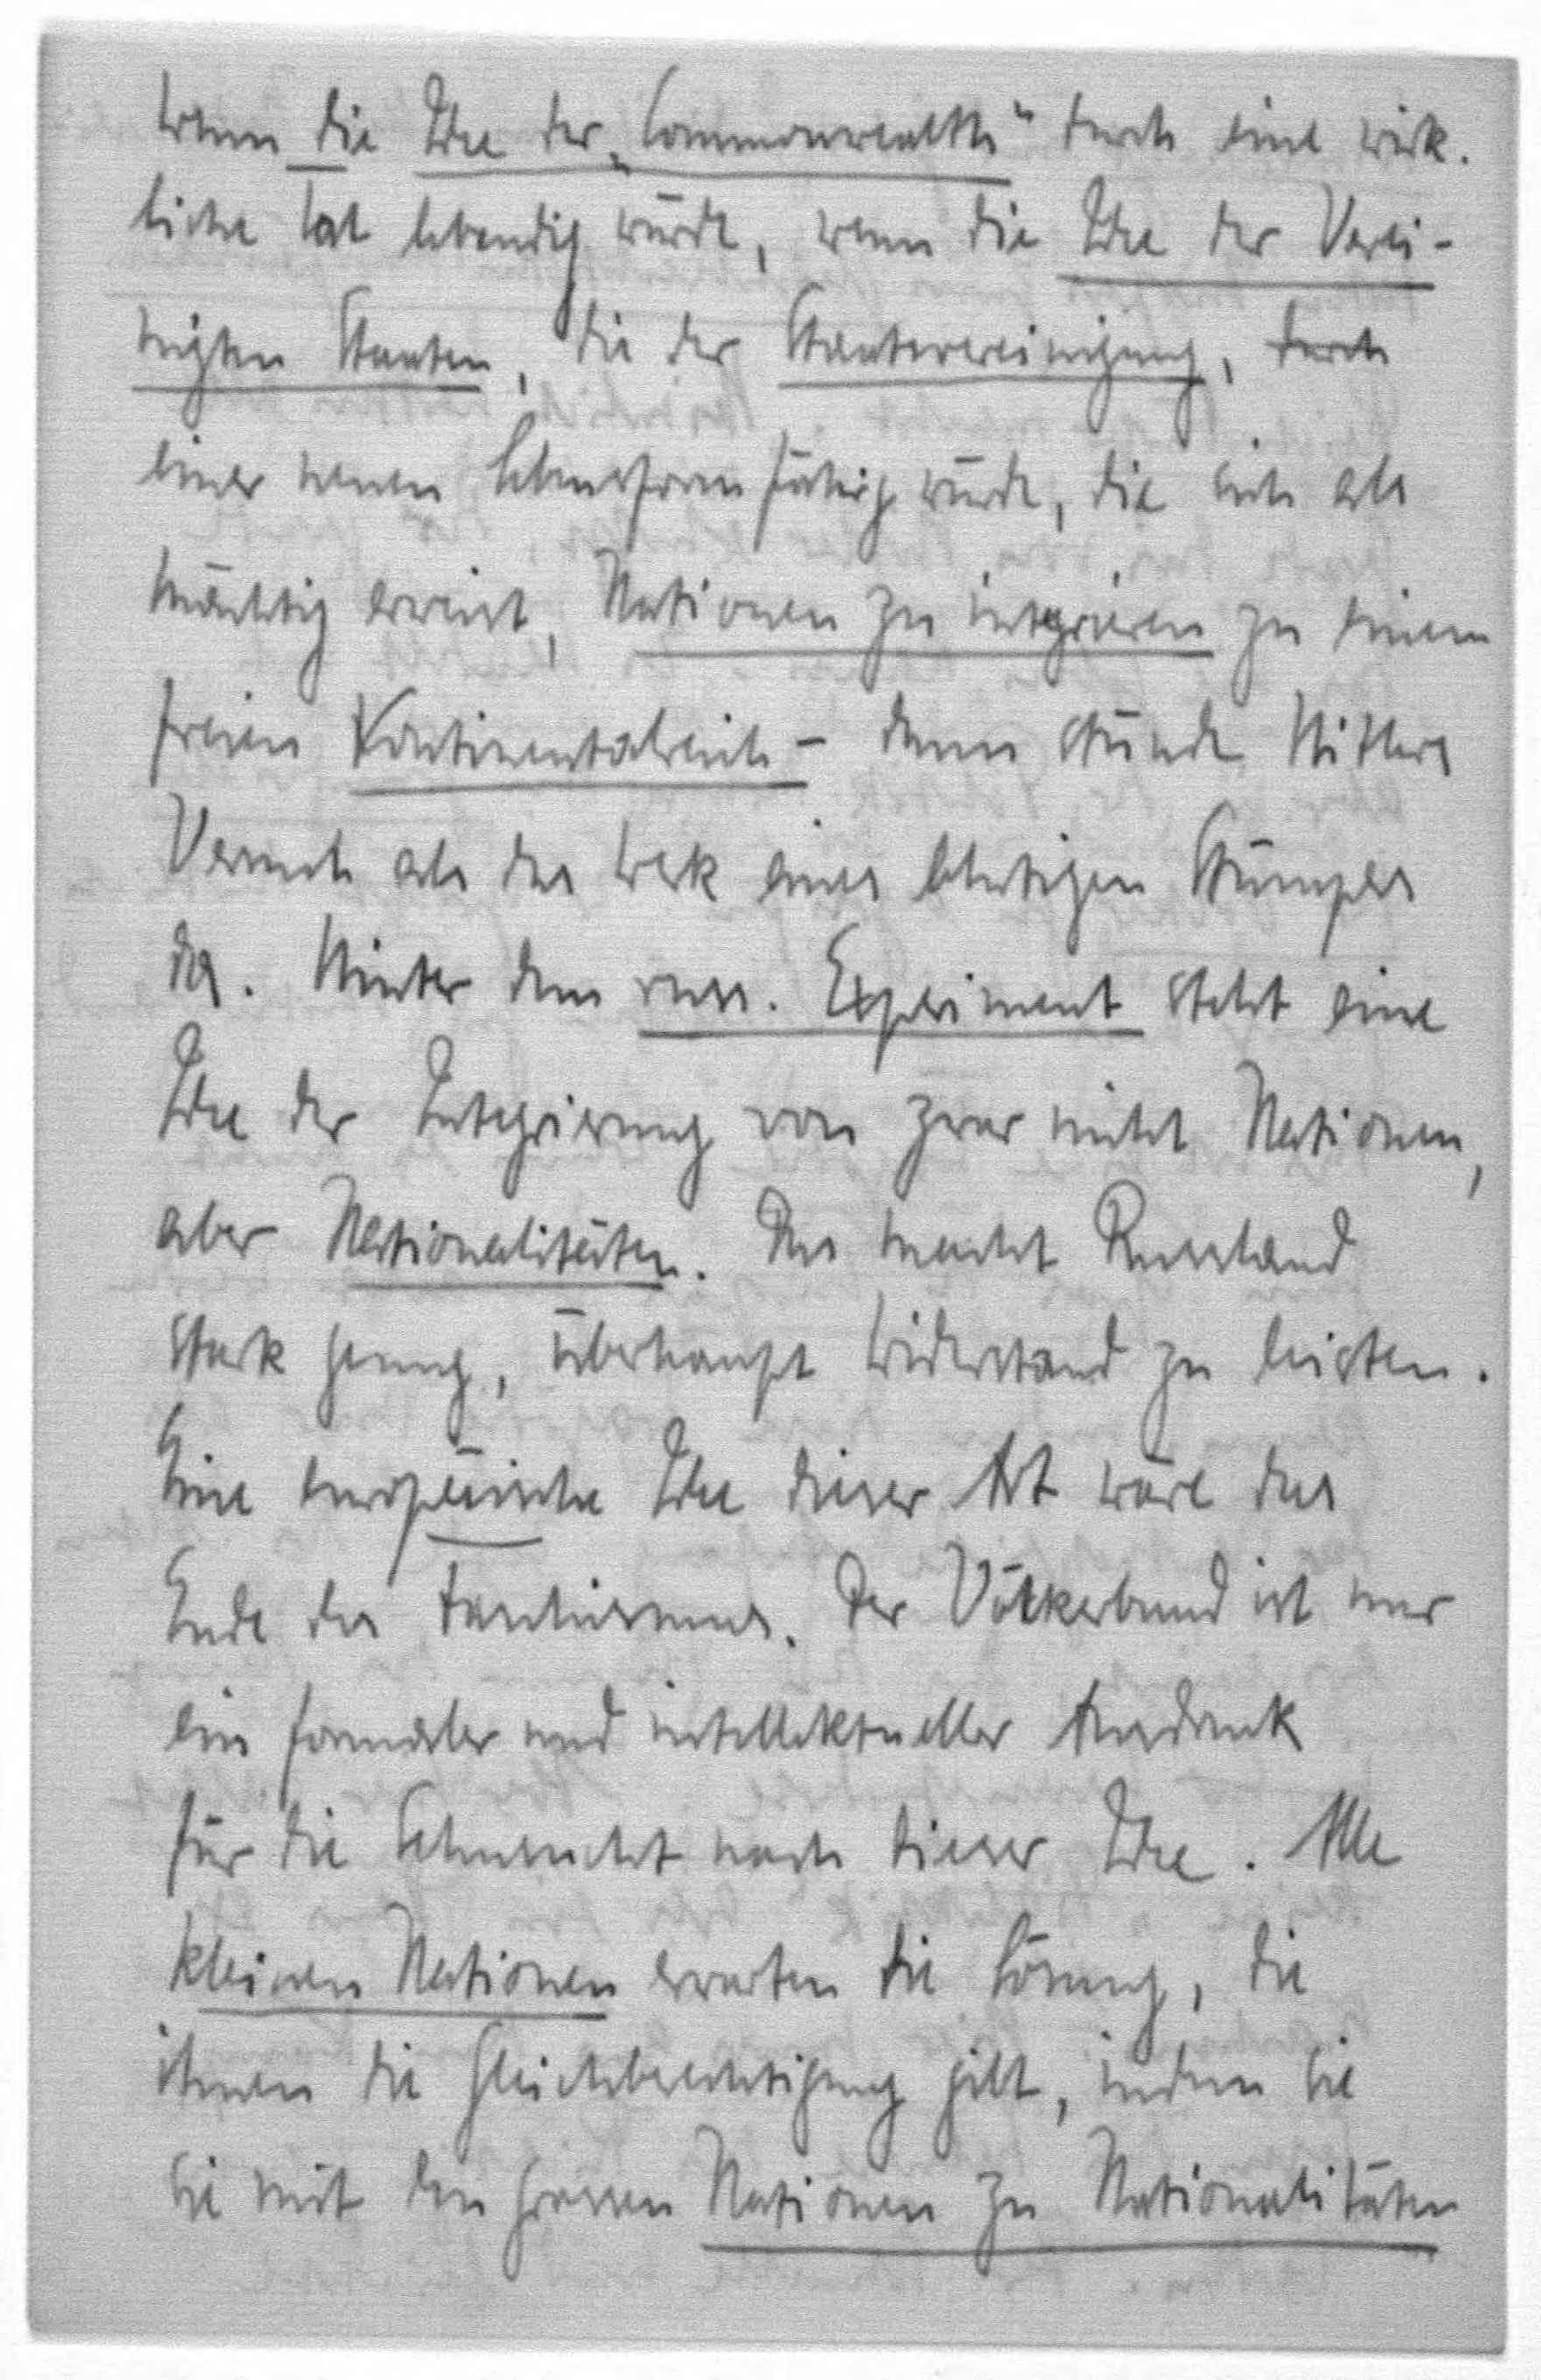 Wenn die Idee der „Commonwealth" durch eine wirk-
liche Tat lebendig würde, wenn die Idee der Verei-
nigten Staaten, die der Staatenvereinigung, durch
einer neuen Lebensform fähig würde, die sich als
mächtig erweist, Nationen zu integrieren zu einem
freien Kontinentalreich – dann stünde Hitlers
Versuch als das Werk eines blutigen Stümpers
da. Hinter dem russ. Experiment steht eine
Idee der Integrierung von zwar nicht Nationen,
aber Nationalitäten. Das macht Russland
stark genug, überhaupt Widerstand zu leisten.
Eine europäische Idee dieser Art wäre das
Ende des Faschismus. Der Völkerbund ist nur
ein formaler und intellektueller Ausdruck
für die Sehnsucht nach dieser Idee. Alle
kleinen Nationen erwarten die Lösung, die
ihnen die Gleichberechtigung gibt, indem sie
sie mit den grossen Nationen zu Nationalitäten